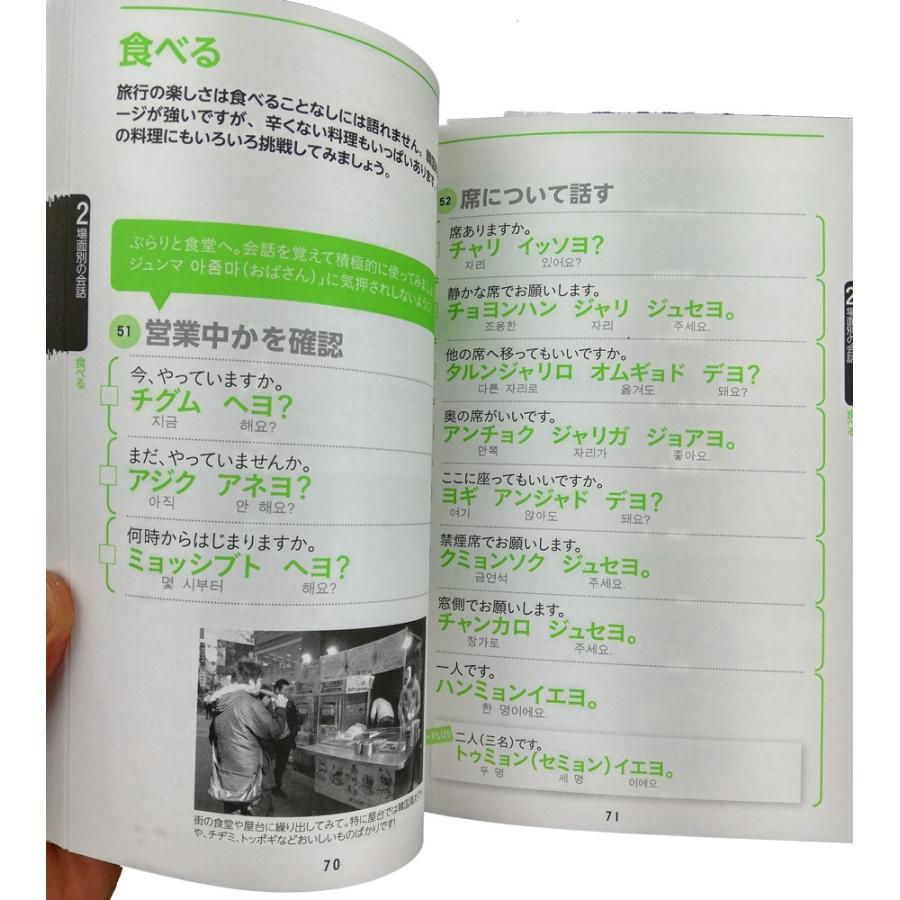 食べる
旅行の楽しさは食べることなしには語れません。
ージが強いですが、辛くない料理もいっぱいあります。
の料理にもいろいろ挑戦してみましょう。
2 場面別の会話
食べる
ぶらりと食堂へ。会話を覚えて積極的に使ってみましょ
ジュンマ 아줌마(おばさん)」に気押されしないように
51 営業中かを確認
今、やっていますか。
チグム ヘヨ?
지금 해요?
まだ、やっていませんか。
アジク アネヨ?
아직 안 해요?
何時からはじまりますか。
ミョッシブト ヘヨ?
몇 시부터 해요?
街の食堂や屋台に繰り出してみて。特に屋台では韓国風
や、チヂミ、トッポギなどおいしいものばかりです!
70
52 席について話す
席ありますか。
チャリ イッソヨ?
자리 있어요?
静かな席でお願いします。
チョヨンハン ジャリ ジュセヨ。
조용한 자리 주세요.
他の席へ移ってもいいですか。
タルンジャリロ オムギョド デヨ?
다른 자리로 옮겨도 돼요?
奥の席がいいです。
アンチョク ジャリガ ジョアヨ。
안쪽 자리가 좋아요.
ここに座ってもいいですか。
ヨギ アンジャド デヨ?
여기 앉아도 돼요?
禁煙席でお願いします。
クミョンソク ジュセヨ。
금연석 주세요.
窓側でお願いします。
チャンカロ ジュセヨ。
창가로 주세요.
一人です。
ハンミョンイエヨ。
한 명이에요.
PLUS 二人(三名)です。
トゥミョン(セミョン)イエヨ。
두 명 세 명 이에요.
2 場面別の会話
食べる
71